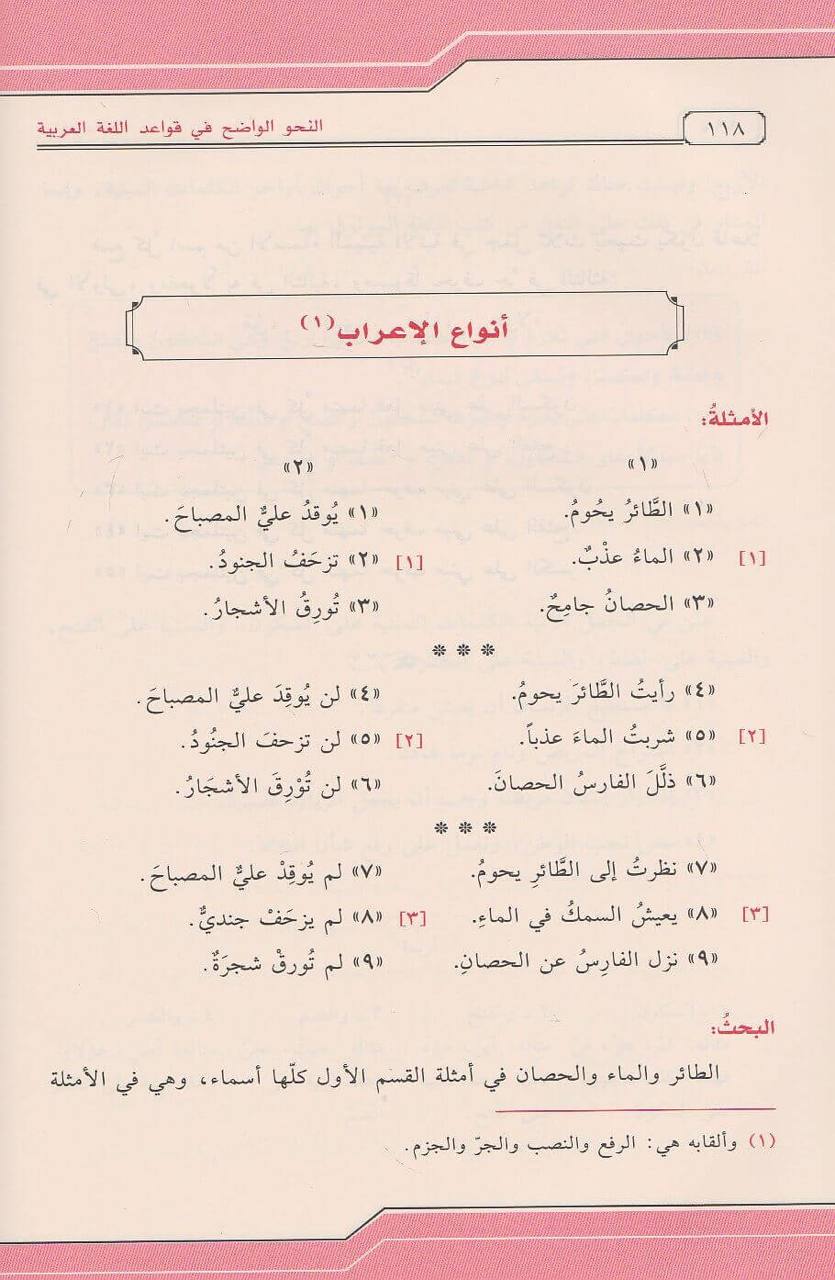 ١١٨ النحو الواضح في قواعد اللغة العربية
أنواع الإعراب(١)
الأمثلةُ:
«١» «٢»
«١» الطَّائرُ يحُومُ. «١» يُوقدُ عليٌّ المصباحَ.
[١] «٢» الماءُ عذْبٌ. [١] «٢» تزحَفُ الجنودُ.
«٣» الحصانُ جامِحٌ. «٣» تُورِقُ الأشجارُ.
* * *
«٤» رأيتُ الطَّائرَ يحومُ. «٤» لن يُوقِدَ عليٌّ المصباحَ.
[٢] «٥» شربتُ الماءَ عذباً. [٢] «٥» لن تزحفَ الجنُودُ.
«٦» ذلَّلَ الفارسُ الحصانَ. «٦» لن تُوْرِقَ الأشجَارُ.
* * *
«٧» نظرتُ إلى الطَّائرِ يحومُ. «٧» لم يُوقِدْ عليٌّ المصباحَ.
[٣] «٨» يعيشُ السمكُ في الماءِ. [٣] «٨» لم يزحَفْ جنديٌّ.
«٩» نزل الفارِسُ عن الحصانِ. «٩» لم تُورقْ شجرَةٌ.
البحثُ:
الطائر والماء والحصان في أمثلة القسم الأول كلّها أسماء، وهي في الأمثلة
(١) وألقابه هي: الرفع والنصب والجرّ والجزم.